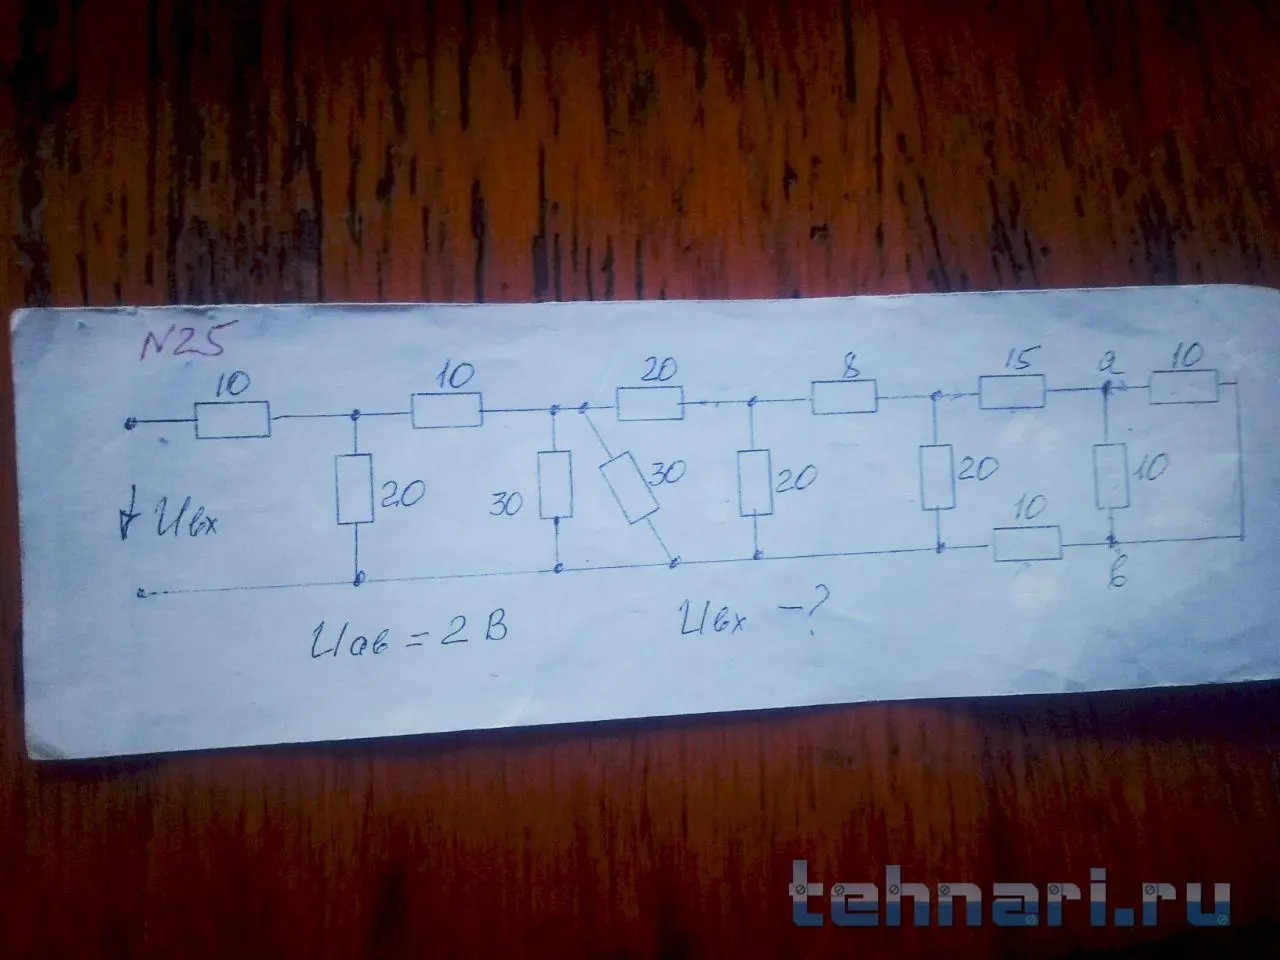 N25
10 10 20 8 15 a 10
20 30 30 20 20 10 10
Uвх
в
Uав = 2 В Uвх - ?
tehnari.ru